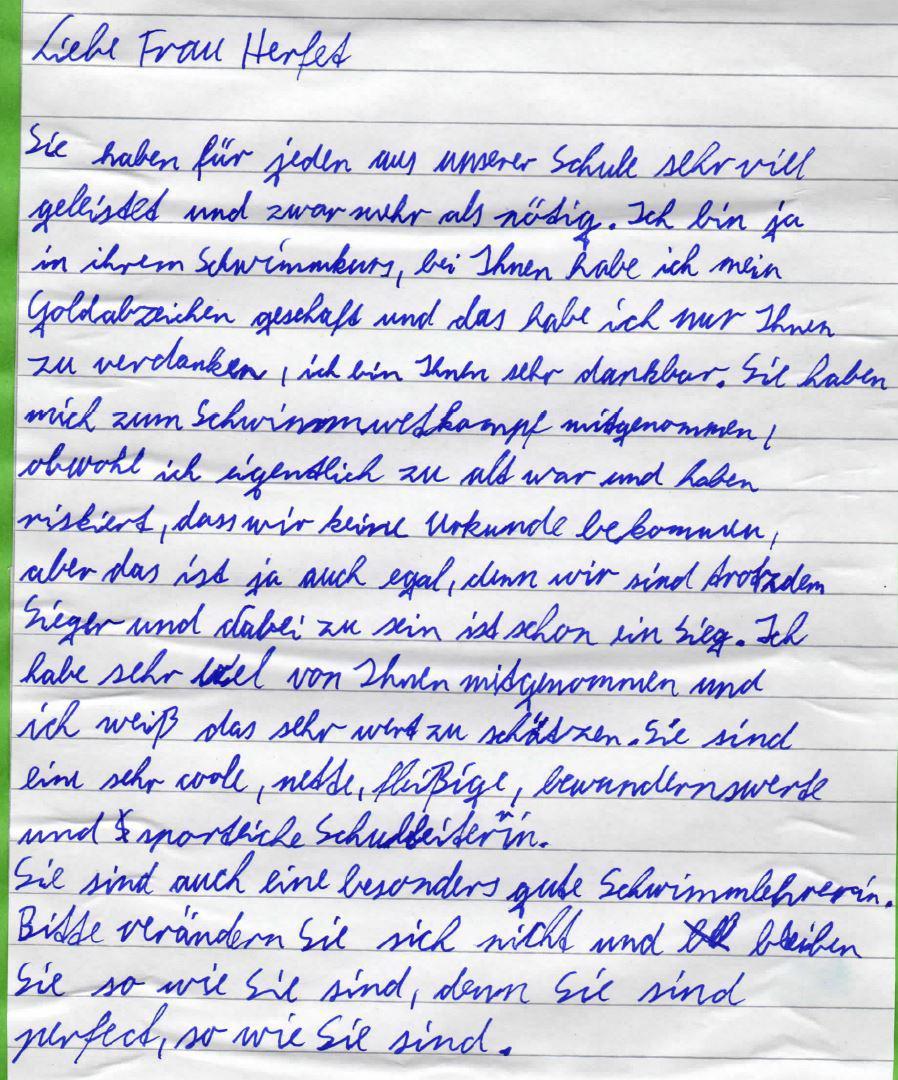 Liebe Frau Herfet
Sie haben für jeden aus unserer Schule sehr viel
geleistet und zwar mehr als nötig. Ich bin ja
in ihrem Schwimmkurs, bei Ihnen habe ich mein
Goldabzeichen geschaft und das habe ich nur Ihnen
zu verdanken, ich bin Ihnen sehr dankbar. Sie haben
mich zum Schwimmwetkampf mitgenommen,
obwohl ich eigentlich zu alt war und haben
riskiert, dass wir keine Urkunde bekommen,
aber das ist ja auch egal, denn wir sind trotzdem
Sieger und dabei zu sein ist schon ein Sieg. Ich
habe sehr viel von Ihnen mitgenommen und
ich weiß das sehr wert zu schätzen. Sie sind
eine sehr coole, nette, fleißige, bewundernswerte
und sportliche Schulleiterin.
Sie sind auch eine besonders gute Schwimmlehrerin.
Bitte verändern Sie sich nicht und bleiben
Sie so wie Sie sind, denn Sie sind
perfect, so wie Sie sind.